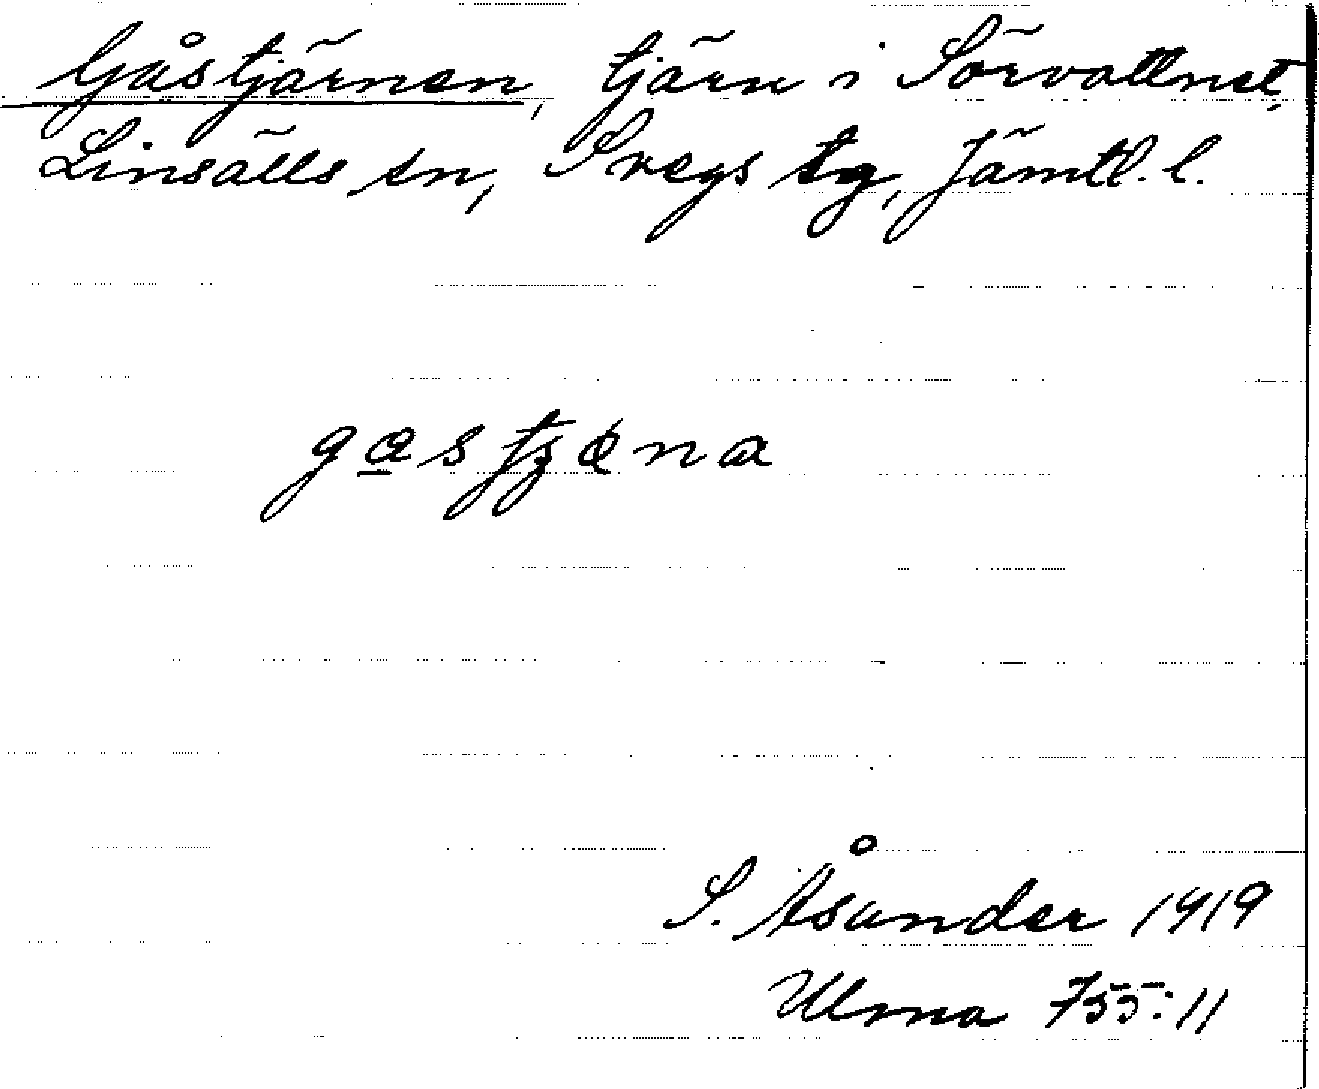 Gåstjärnen, tjärn i Sörvattnet,
Linsälls sn, Svegs tg, Jämtl. l.
S. Åsander 1919
Ulma 755:11